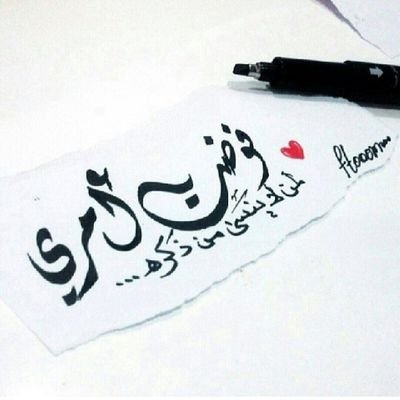 فوضت أمري
لمن لا ينسى من ذكره...